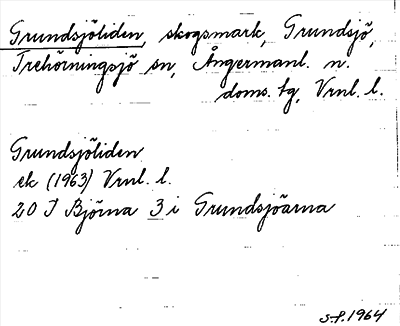 Grundsjöliden, skogsmark, Grundsjö,
Trehörningsjö sn, Ångermanl. n.
doms. tg, Vrnl. l.
Grundsjöliden
ek (1963) Vrnl. l.
20 I Björna 3 i Grundsjöarna
S-f. 1964